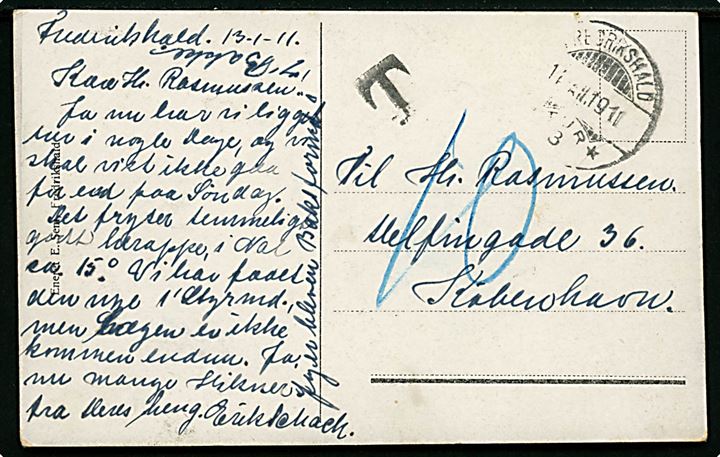 Fredrikshald. 13-1-11.
Kære Hr. Rasmussen.
Ja nu har vi ligget
her i nogle Dage, og vi
skal vist ikke gaa
før end paa Søndag.
Det fryser temmelig
godt heroppe, i Nat
ca. 15.° Vi har faaet
den nye 1' Styrmd.,
men Kragen er ikke
kommen endnu. Ja,
nu mange Hilsner
fra Deres heng. Erik Schack.
jeg er bleven Baadsformand
T
FREDRIKSHALD
10
Til Hr. Rasmussen.
Delfingade 36.
København.